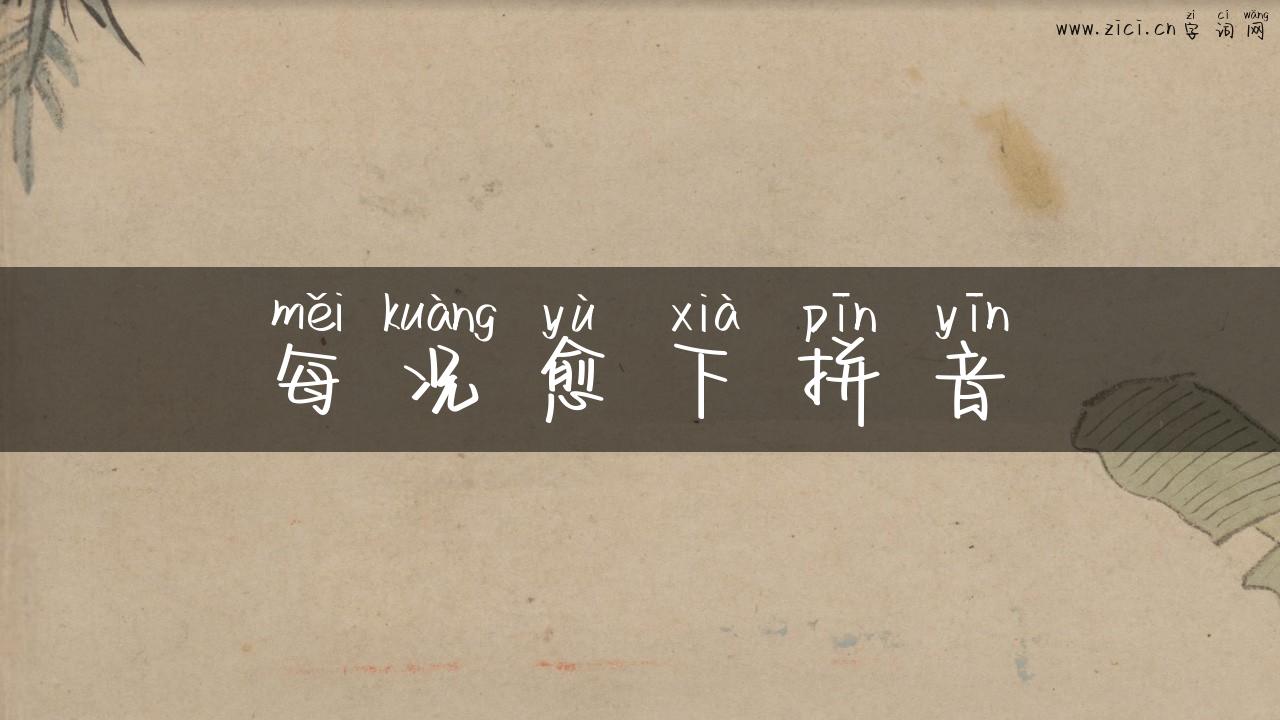 zì cí wǎng
www.zici.cn 字词网
měi kuàng yù xià pīn yīn
每况愈下拼音